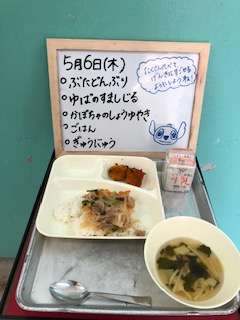 5月6日(木)
○ぶたどんぶり
○ゆばのすましじる
○かぼちゃのしょうゆやき
○ごはん
○ぎゅうにゅう